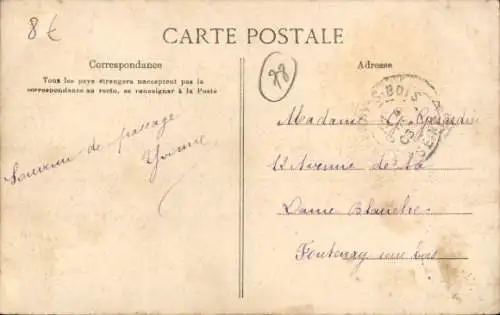 8 €
CARTE POSTALE
Correspondance
Tous les pays étrangers n'acceptent pas la
correspondance au recto, se renseigner à la Poste
Adresse
Souvenir de passage
Yvonne
BOIS
Madame
12 Avenue de la
Dame Blanche
Fontenay sous Bois